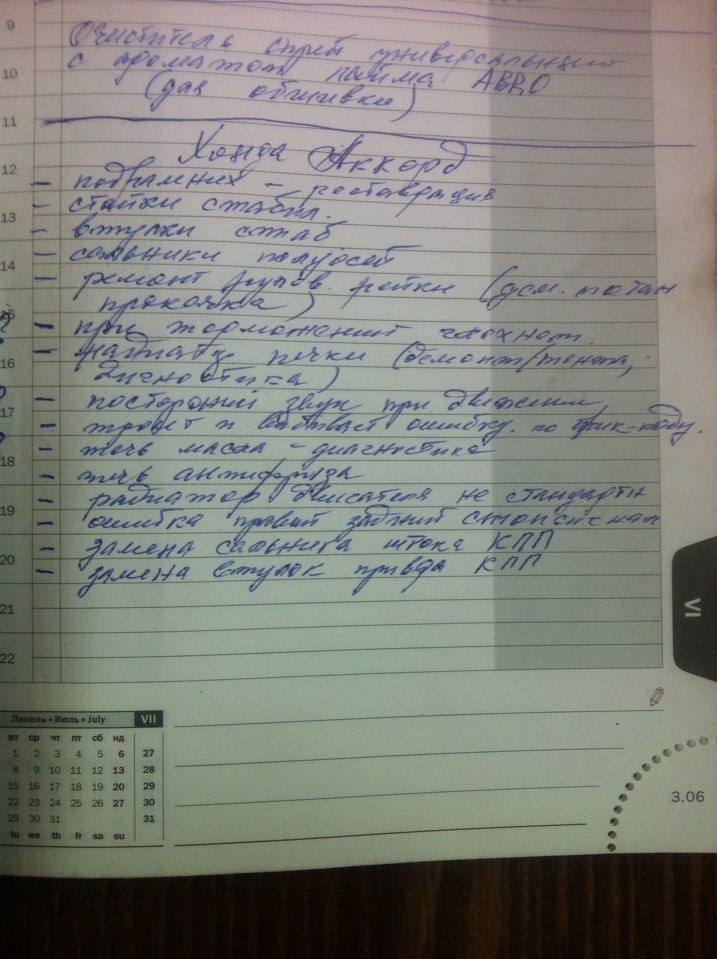 9
Очиститель спрей универсальный
10
с ароматом лайма ABRO
(для обшивки)
11
Хонда Аккорд
12
– подрамник – реставрация
13
– стойки стабил.
– втулки стаб
14
– сальники полуосей
– ремонт рулев. рейки (
15
прокачка)
– при торможении глохнет.
16
– радиатор печки (демонт/
диагностика)
17
– посторонний звук при движении
– троит и выбивает ошибку. по
18
– течь масла – диагностика
– течь антифриза
19
– радиатор двигателя не стандартн
– ошибка правый задний стопсигнал
20
– замена сальника штока КПП
– замена втулок привода КПП
21
22
VI
Липень • Июль • July VII
вт ср чт пт сб нд
1 2 3 4 5 6 27
8 9 10 11 12 13 28
15 16 17 18 19 20 29
22 23 24 25 26 27 30
29 30 31 31
tu we th fr sa su
3.06